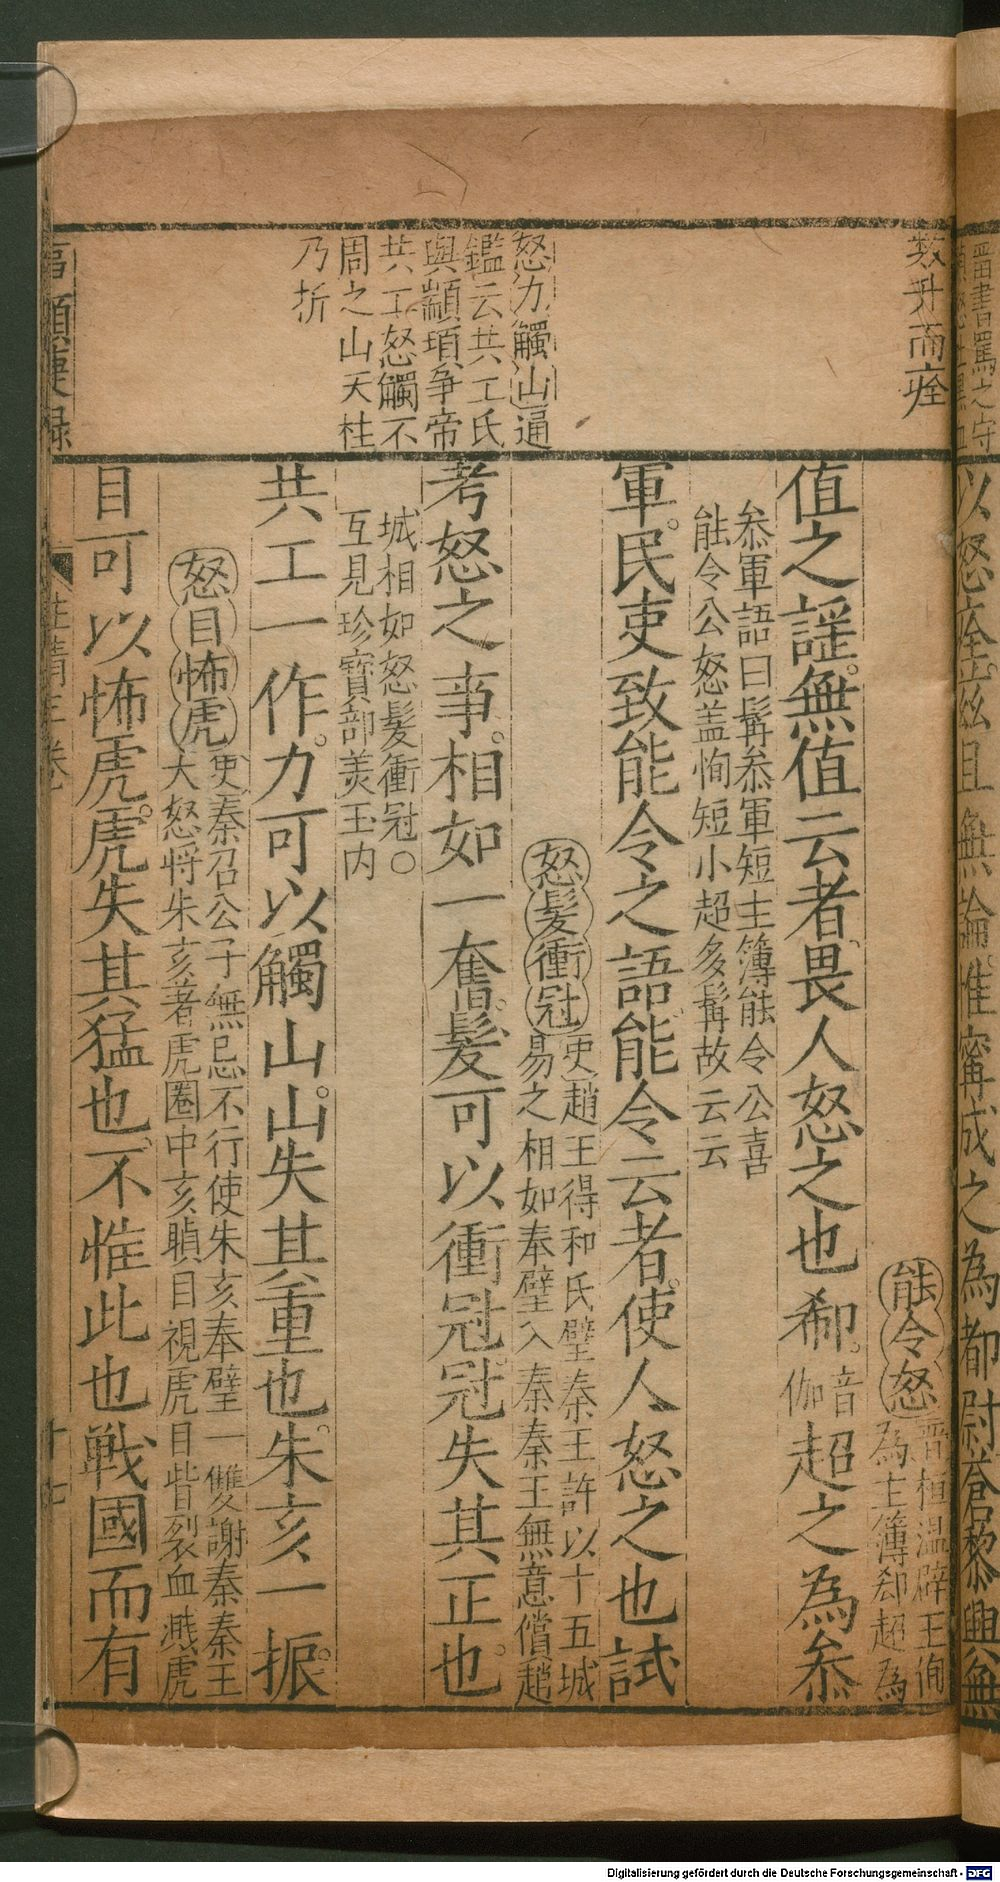 數升而痊
怒力觸山通
鑑云共工氏
與顓頊争帝
共工怒觸不
周之山天柱
乃折
能令怒晋桓温辟王恂
為主簿郄超為
值之謡無值云者畏人怒之也郗音
伽超之為叅
叅軍語曰髯叅軍短主簿能令公喜
能令公怒盖恂短小超多髯故云云
軍民吏致能令之語能令云者使人怒之也試
怒髪衝冠史趙王得和氏璧秦王許以十五城
易之相如奉璧入秦秦王無意償趙
考怒之事相如一奮髪可以衝冠冠失其正也
城相如怒髪衝冠○
互見珍寳部美玉内
共工一作力可以觸山山失其重也朱亥一振
怒目怖虎史秦召公子無忌不行使朱亥奉璧一雙謝秦秦王
大怒将朱亥著虎圈中亥瞋目視虎目眥裂血濺虎
目可以怖虎虎失其猛也不惟此也戰國而有
類捷録
卷
十七
晋書罵之守
以怒痊兹且無論惟寗成之為都尉蒼黎興無
Digitalisierung gefördert durch die Deutsche Forschungsgemeinschaft - DFG